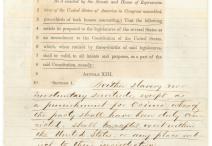 Be it resolved by the Senate and House of Representatives
of the United States of America in Congress assembled,
(two-thirds of both houses concurring,) That the following
article be proposed to the legislatures of the several States as
an amendment to the Constitution of the United States,
which, when ratified by three-fourths of said legislatures, shall
be valid to all intents and purposes, as a part of the
said Constitution, namely:
ARTICLE XIII.
SECTION 1. Neither slavery nor
involuntary servitude, except as
a punishment for crime whereof
the party shall have been duly con-
victed, shall exist within
the United States, or any place sub-
ject to their jurisdiction.